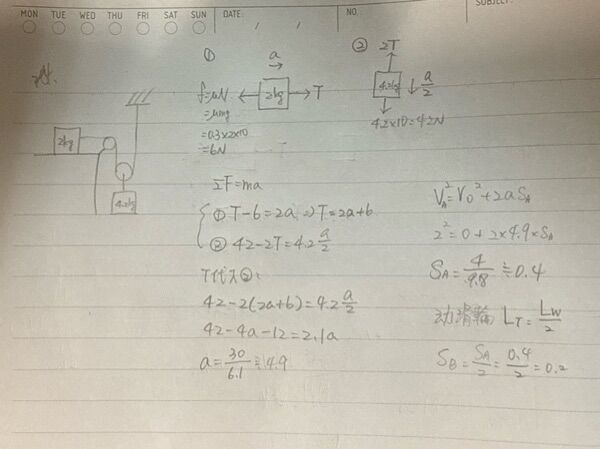 MON TUE WED THU FRI SAT SUN DATE: / / NO. SUBJECT:
① a
2kg
f=μN
=μmg
=0.3×2×10
=6N
T
② 2T
4.2kg
a/2
4.2×10=42N
2kg
4.2kg
ΣF=ma
① T-6=2a ⇒ T=2a+6
② 42-2T=4.2 a/2
T代入②:
42-2(2a+6)=4.2 a/2
42-4a-12=2.1a
a=30/6.1≒4.9
V_A²=V_0²+2aS_A
2²=0+2×4.9×S_A
S_A=4/9.8≒0.4
动滑輪 L_T=L_W/2
S_B=S_A/2=0.4/2=0.2